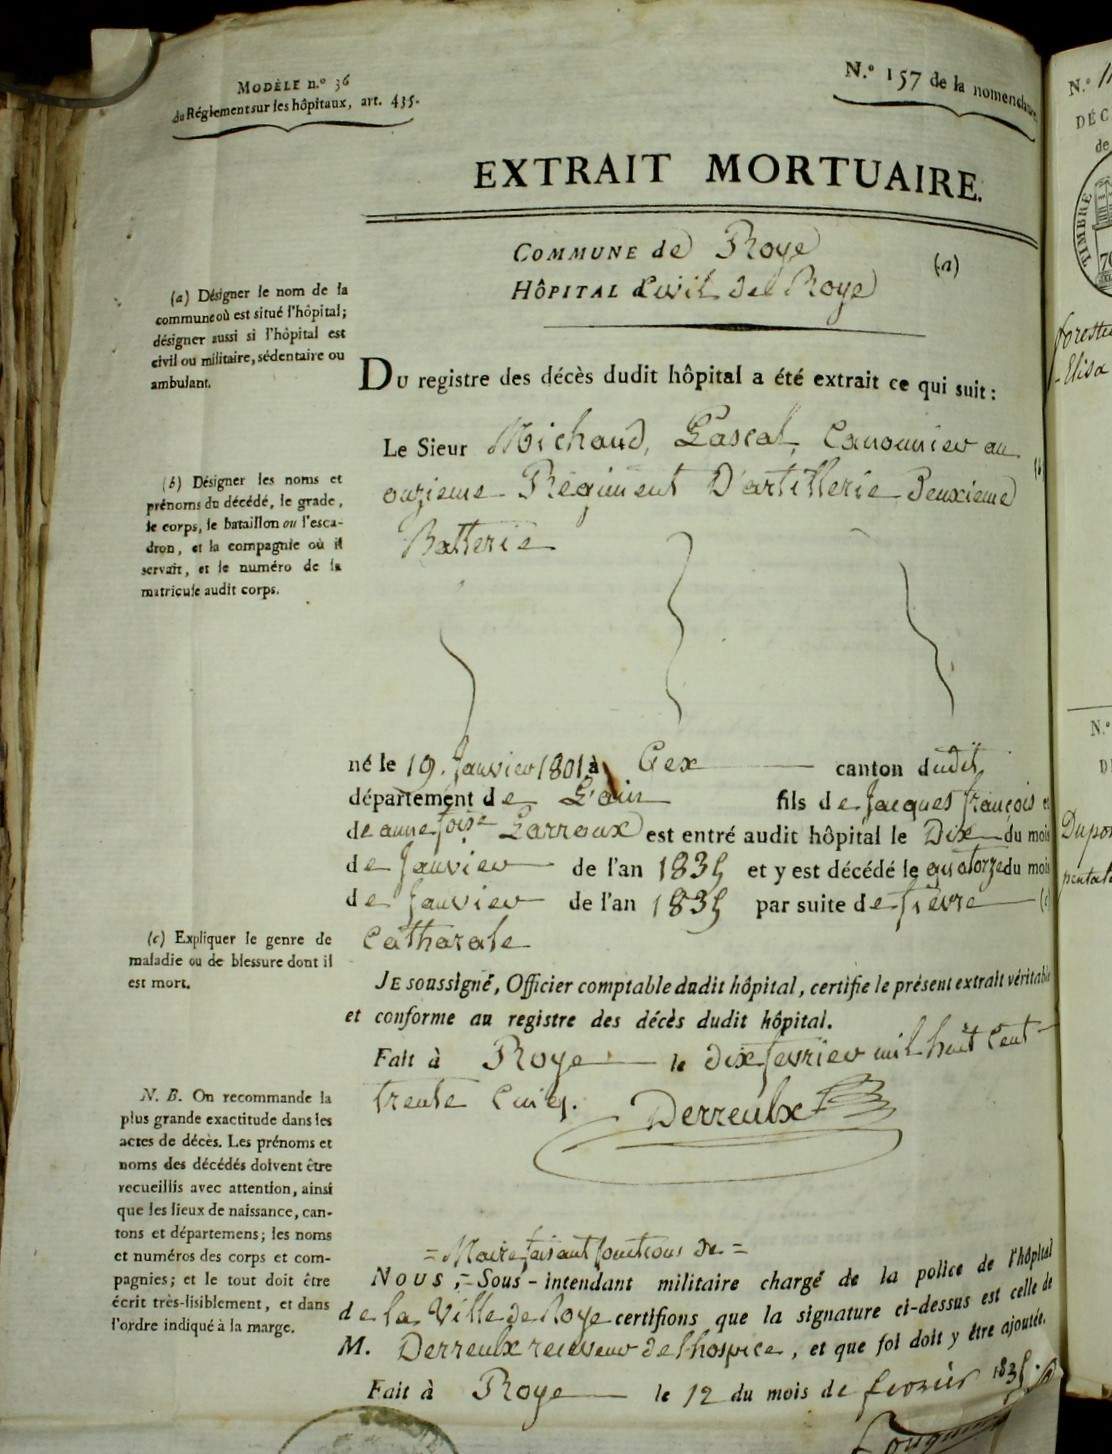 MODÈLE n.º 36
du Réglement sur les hôpitaux, art. 435.
N.º 157 de la nomenclature
EXTRAIT MORTUAIRE.
COMMUNE de Roye
(a)
HÔPITAL Civil de Roye
(a) Désigner le nom de la
commune où est situé l'hôpital;
désigner aussi si l'hôpital est
civil ou militaire, sédentaire ou
ambulant.
DU registre des décès dudit hôpital a été extrait ce qui suit :
Le Sieur Michaud, Pascal, Canonnier au
onzieme Régiment D'artillerie Deuxieme
Batterie
(b) Désigner les noms et
prénoms du décédé, le grade,
le corps, le bataillon ou l'esca-
dron, et la compagnie où il
servait, et le numéro de la
matricule audit corps.
né le 19. Janvier 1801 à Gex canton dudit
département de L'ain fils de Jacques françois et
de anne foise Larroux est entré audit hôpital le Dix du mois
de Janvier de l'an 1835 et y est décédé le quatorze du mois
de Janvier de l'an 1835 par suite de fièvre (c
Catharale
(c) Expliquer le genre de
maladie ou de blessure dont il
est mort.
JE soussigné, Officier comptable dudit hôpital, certifie le présent extrait véritable
et conforme au registre des décès dudit hôpital.
Fait à Roye le dix fevrier mil huit Cent
trente Cinq.
Derreulx
N. B. On recommande la
plus grande exactitude dans les
actes de décès. Les prénoms et
noms des décédés doivent être
recueillis avec attention, ainsi
que les lieux de naissance, can-
tons et départemens; les noms
et numéros des corps et com-
pagnies; et le tout doit être
écrit très-lisiblement, et dans
l'ordre indiqué à la marge.
= Maire faisant fonctions de =
NOUS, Sous-intendant militaire chargé de la police de l'hôpital
de la Ville de Roye certifions que la signature ci-dessus est celle de
M. Derreulx receveur de l'hospice, et que foi doit y être ajoutée.
Fait à Roye le 12 du mois de fevrier 1835.
N.º
DÉC
de
TIMBRE
70
foresti
Elisa
N.º
D
Dupon